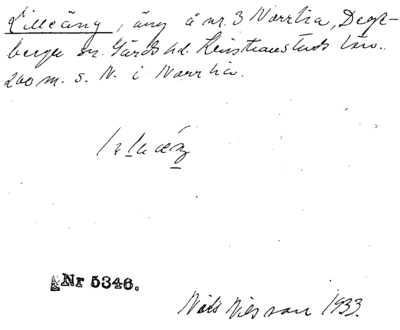 Lilleäng, äng å nr. 3 Norrlia, Dege-
berga sn. Gärds hd. Kristianstads län.
200 m. s. N. i Norrlia.
Nr 5346.
Nils Nilsson 1933.